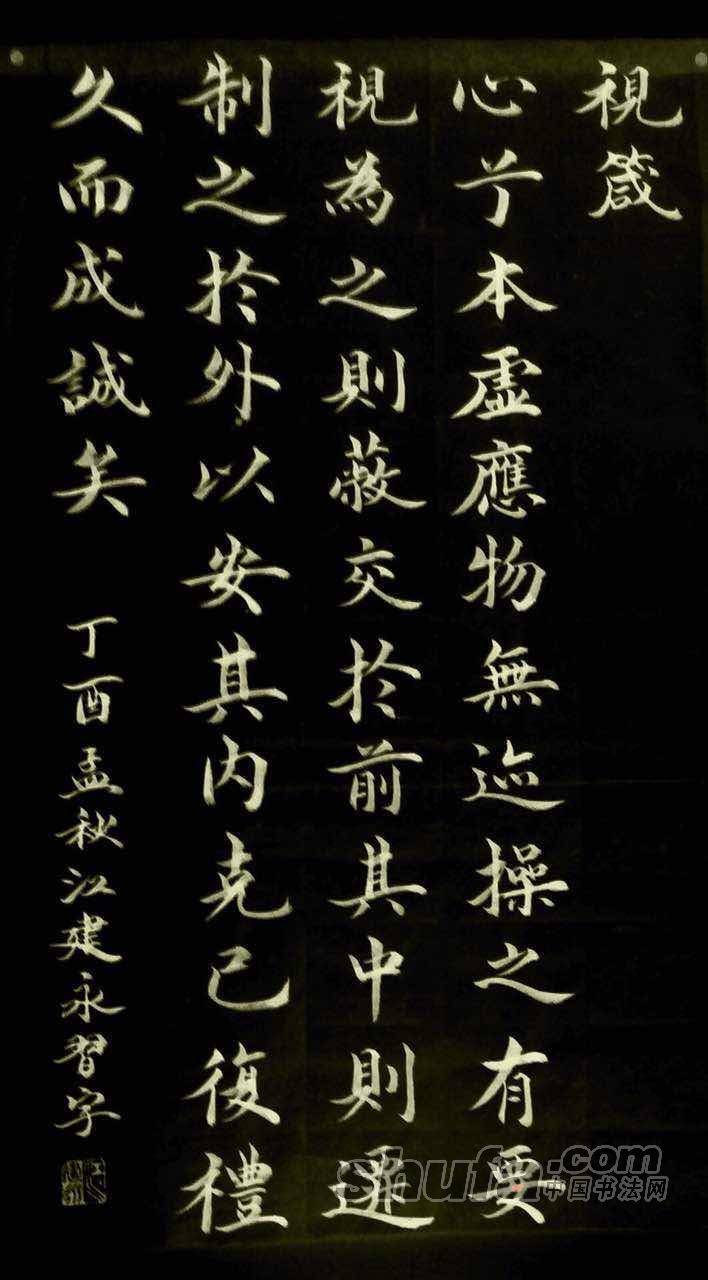 視箴
心兮本虛應物無迹操之有要
視為之則蔽交於前其中則遷
制之於外以安其内克己復禮
久而成誠矣
丁酉孟秋江建永習字
shufa.com
中国书法网